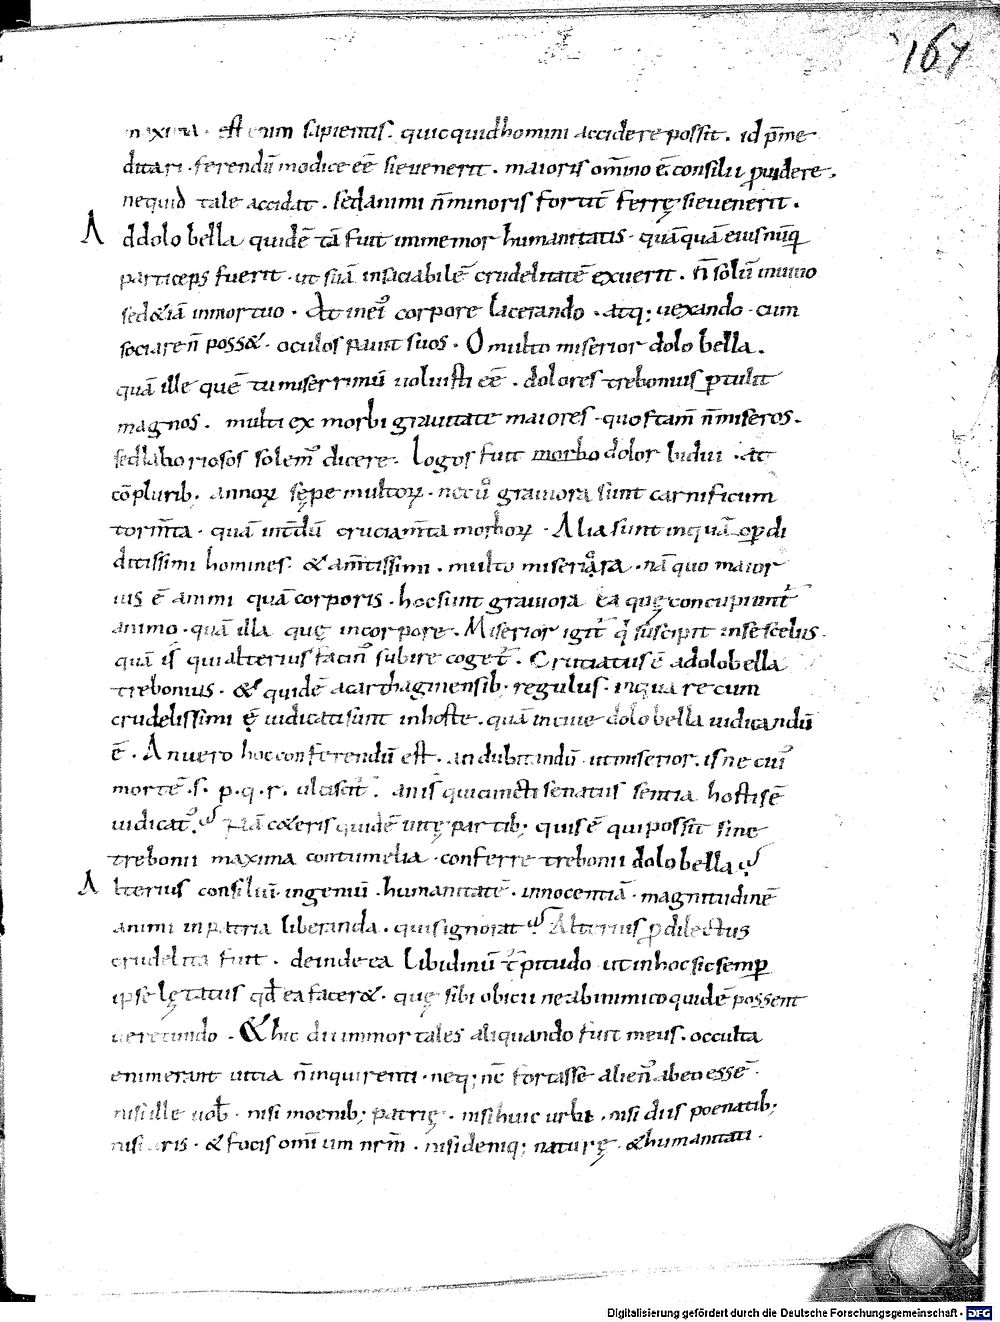 167
maxima · est enim sapientis. quicquid homini accidere possit. id p̄me
ditari · ferendū modice eē si euenerit. maioris om̄ino ē consilii ꝓuidere.
nequid tale accidat. sed animi n̄ minoris fortit̄ ferrę si euenerit.
Ad dolobella quidē tā fuit immemor humanitatis · quāquā eius nūq̄
particeps fuerit · ut suā insaciabilē crudelitatē exuerit. n̄ solū in uiuo
sed &iā in mortuo · At in ei᷒ corpore lacerando · atq; uexando · cum
sociare n̄ poss& · oculos pauit suos · O multo miserior dolobella.
quā ille quē tu miserrimū uoluisti eē. dolores trebonius ꝑtulit
magnos. multi ex morbi grauitate maiores · quos tam̄ n̄ miseros.
sed laboriosos solem᷒ dicere. Logus fuit morbo dolor bidui · at
cō plurib; annoꝝ sępe multoꝝ · nec u̇ grauiora sunt carnificum
torm̄ta · quā int̄dū cruciam̄ta morboꝝ · Alia sunt inquā o ꝑdi
ditissimi homines. & am̄tissimi. multo miseriora · nā quo maior
uis ē animi quā corporis · hoc sunt grauiora ea quę concupiunt᷒
animo · quā illa quę in corpore. Miserior igit᷒ q̇ suscipit in se scelus.
quā is qui alterius facin᷒ subire coget᷒. Cruciatus ē a dolobella
trebonius. & quidē a carthaginensib; regulus. inqua re cum
crudelissimi ę̄ uidicati sunt in hoste. quā in ciue dolobella uidicandū
ē. An uero hoc conferendū est. an dubitandū ut miserior. is ne cui᷒
mortē .s. p.q.r. ulciscit᷒. an is qui cuncti senatus sentia hostis ē
uidicat᷒. Nā c&eris quidē uitę partib; quis ē qui possit sine
trebonii maxima contumelia · conferre trebonii dolobella
Alterius consiliū. ingeniū. humanitatē. innocentiā. magnitudinē
animi in patria liberanda. quis ignorat Alterius ꝑ dilectus
crudelita fuit. deinde ea libidinū t̄pitudo ut in hoc sic semꝑ
ipse lętatus qd̄ ea facer& · quę sibi obicii ne ab inimico quidē possent
uerecundo. & hic dii immortales aliquando fuit meus. occulta
enim erant uitia n̄ inquirenti. neq; nc̄ fortasse alien᷒ ab eo essē.
nisi ille uob̄. nisi moenib; patrię. nisi huic urbi. nisi diis poenatib;
nisi aris. & focis omīum nr̄m̄. nisi deniq; naturę. & humanitati.
Digitalisierung gefördert durch die Deutsche Forschungsgemeinschaft - DFG